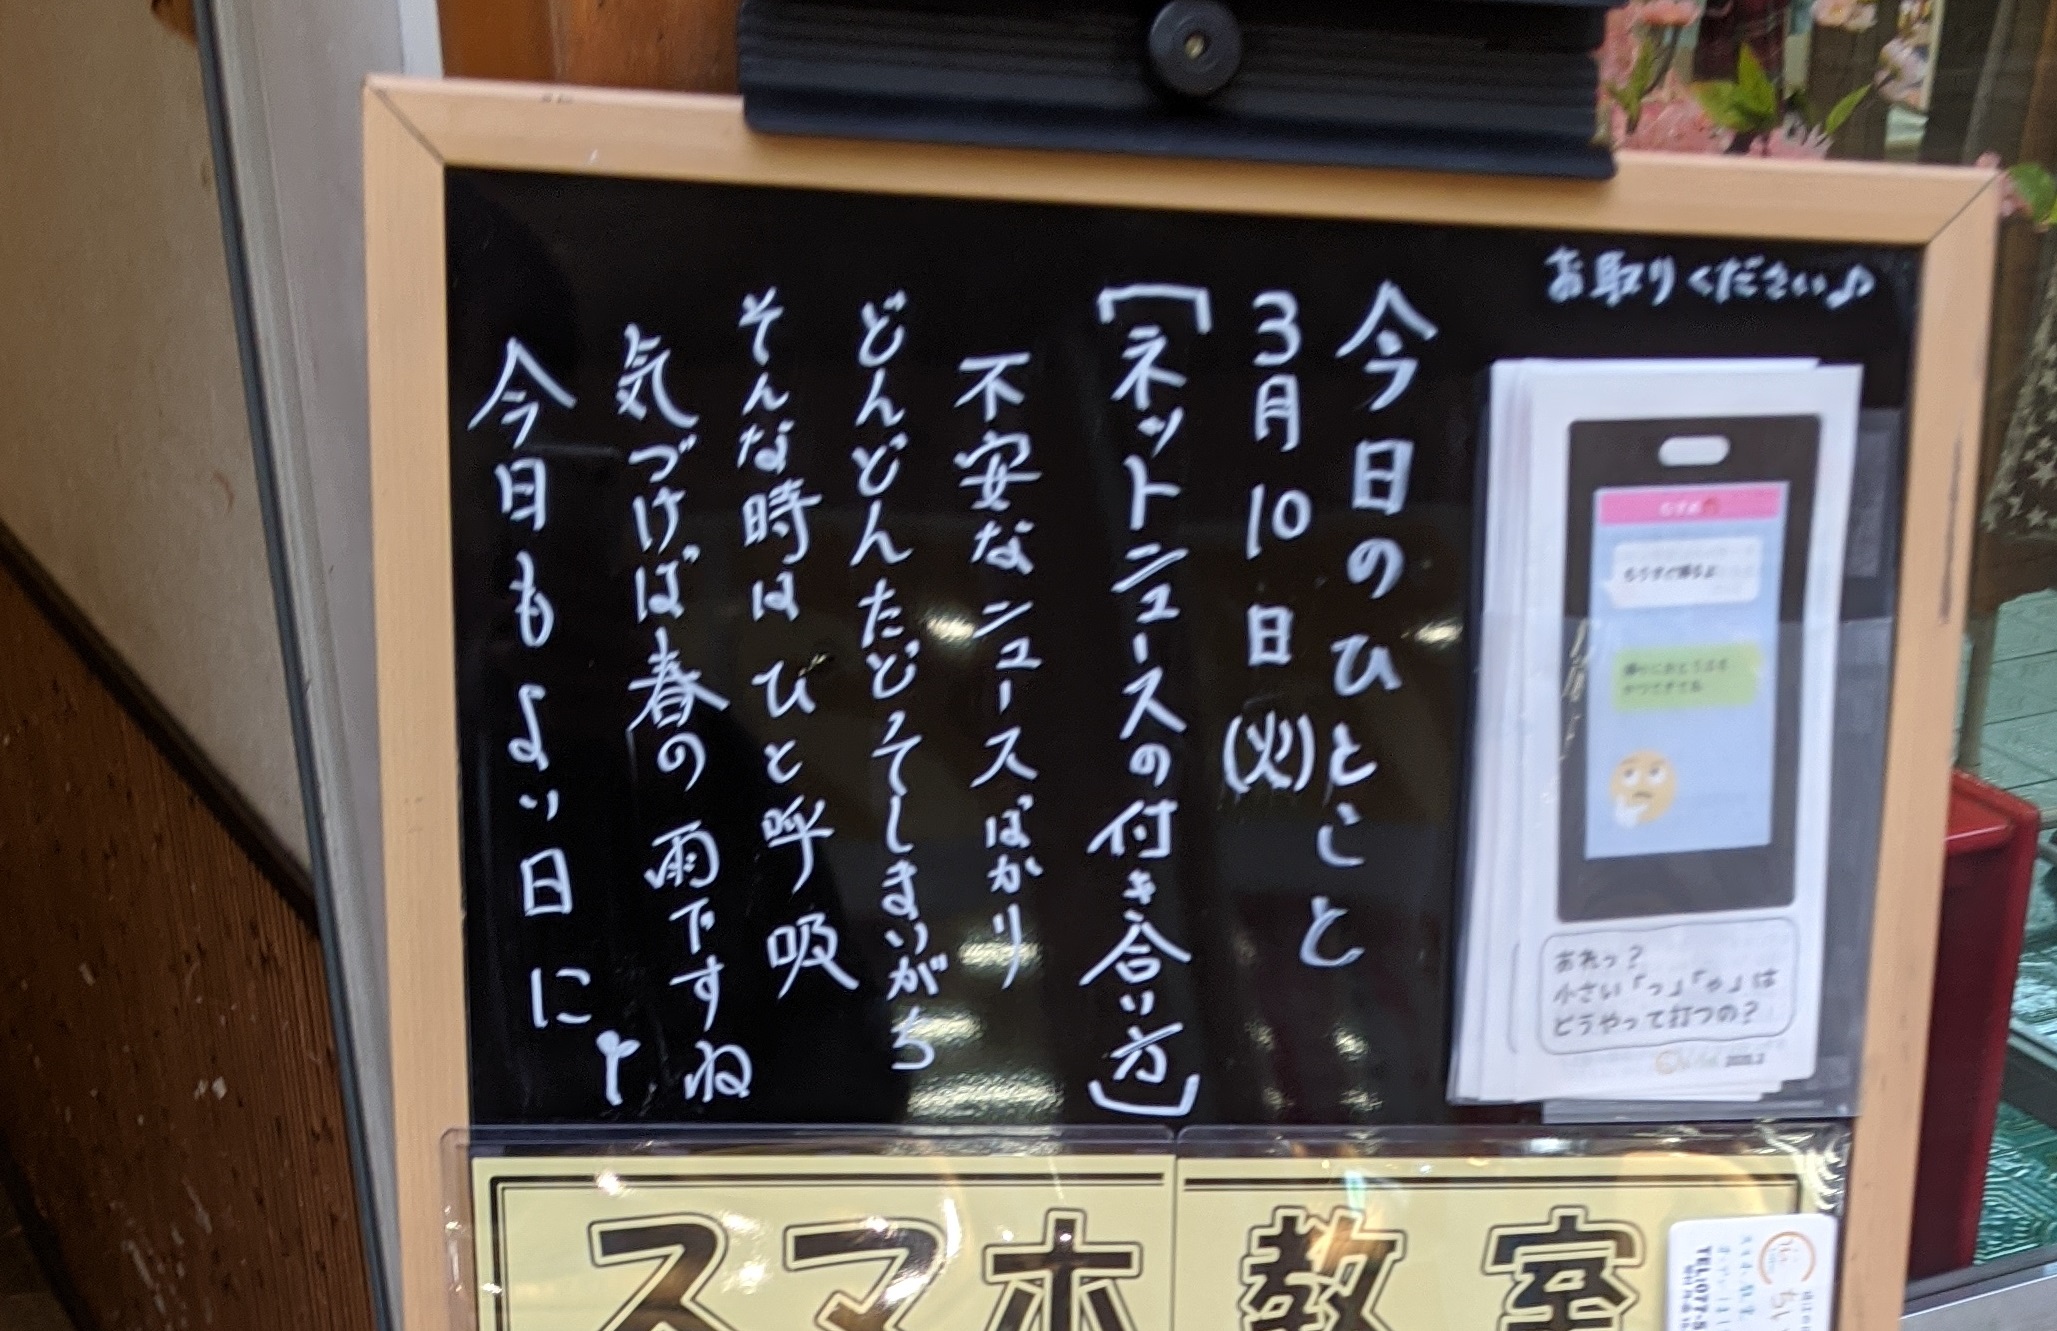 お取りください♪
今日のひとこと
3月10日(火)
[ネットニュースの付き合い方]
不安なニュースばかり
どんどんたどってしまいがち
そんな時はひと呼吸
気づけば春の雨ですね
今日もよい日に
もうすぐ帰るよ
あれっ?
小さい「っ」「ゃ」は
どうやって打つの?
スマホ教室